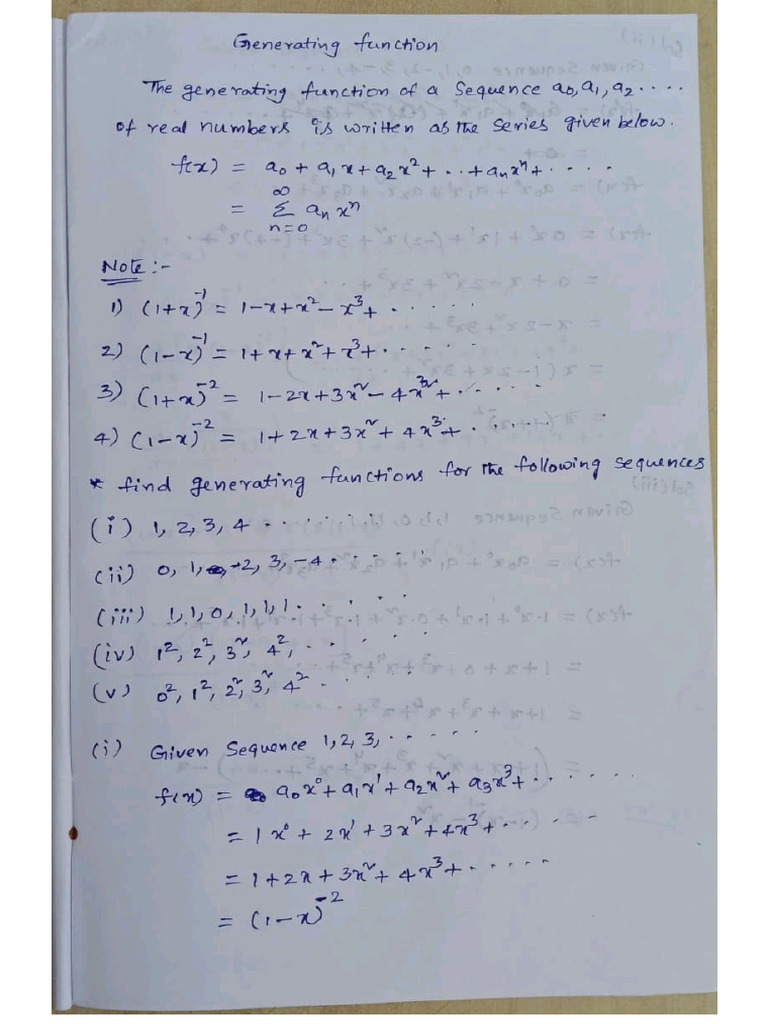 Generating function
The generating function of a Sequence a₀, a₁, a₂ ....
of real numbers is written as the series given below.
f(x) = a₀ + a₁x + a₂x² + ... + aₙxⁿ + .....
= ∞Σn=0 aₙxⁿ
Note :-
1) (1+x)⁻¹ = 1-x+x²-x³+ ......
2) (1-x)⁻¹ = 1+x+x²+x³+ ......
3) (1+x)⁻² = 1-2x+3x²-4x³+ ......
4) (1-x)⁻² = 1+2x+3x²+4x³+ .......
* find generating functions for the following sequences
(i) 1, 2, 3, 4 .......
(ii) 0, 1, -2, 3, -4 .......
(iii) 1, 1, 0, 1, 1, 1 .......
(iv) 1², 2², 3², 4², .......
(v) 0², 1², 2², 3², 4² .......
(i) Given Sequence 1, 2, 3, ......
f(x) = a₀x⁰ + a₁x¹ + a₂x² + a₃x³ + .......
= 1x⁰ + 2x¹ + 3x² + 4x³ + ......
= 1 + 2x + 3x² + 4x³ + ......
= (1-x)⁻²